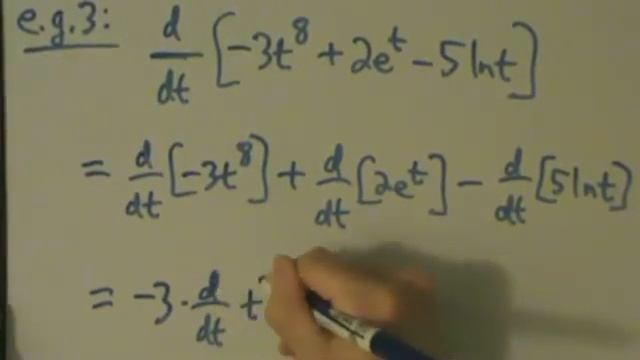 e.g.3: d/dt [-3t⁸ + 2eᵗ - 5 ln t]
= d/dt [-3t⁸] + d/dt [2eᵗ] - d/dt [5 ln t]
= -3 · d/dt t